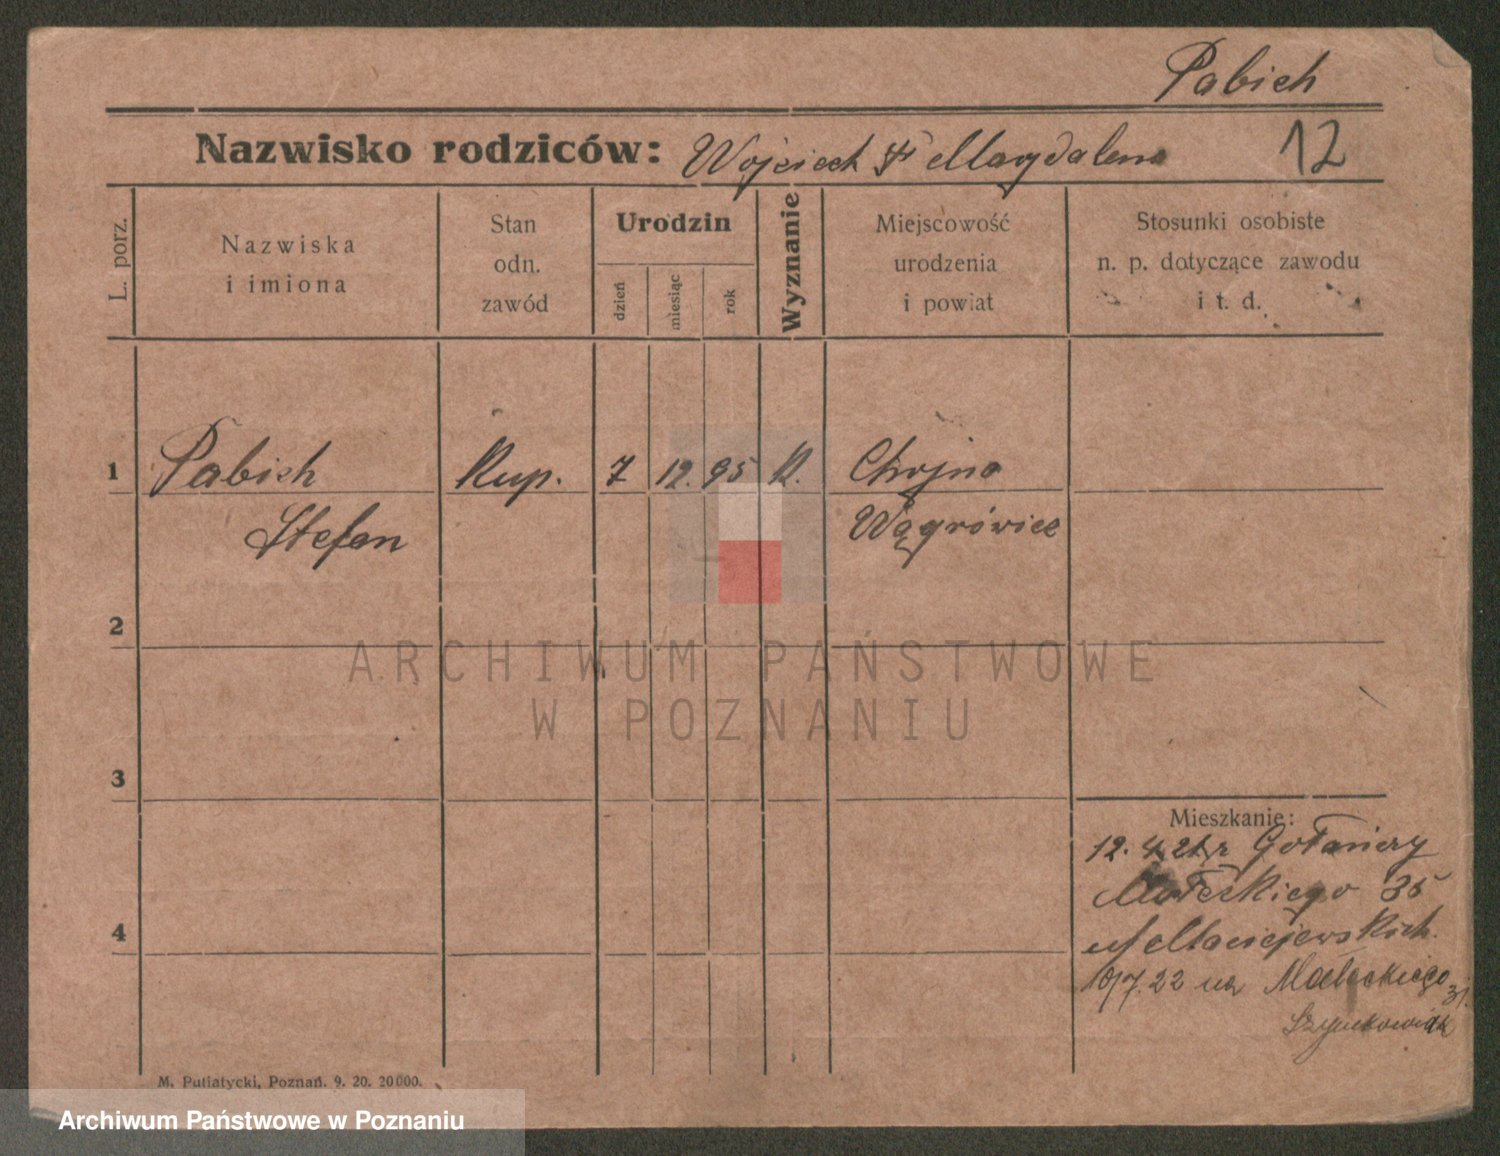 Pabich
Nazwisko rodziców: Wojciech Magdalena
12
L. porz.
Nazwiska
i imiona
Stan
odn.
zawód
Urodzin
dzień
miesiąc
rok
Wyznanie
Miejscowość
urodzenia
i powiat
Stosunki osobiste
n. p. dotyczące zawodu
i t. d.
1 Pabich Kup. 7 12. 95 K. Chojna
Stefan Wągrówiec
2
3
4
Mieszkanie:
12. 4. 21 z Gołańczy
Małeckiego 35
Maciejewskich.
10/7. 22 na Małeckiego 31.
Szymkowiak
M. Putiatycki, Poznań. 9. 20. 20000.
ARCHIWUM PAŃSTWOWE
W POZNANIU
Archiwum Państwowe w Poznaniu